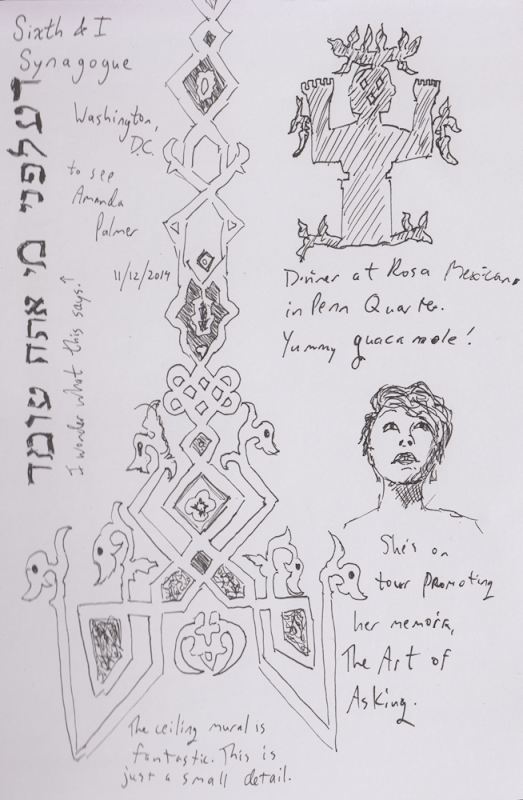 Sixth & I
Synagogue
דעלפני מי אתה עומד
I wonder what this says.↑
Washington,
D.C.
to see
Amanda
Palmer
11/12/2014
Dinner at Rosa Mexicano
in Penn Quarter.
Yummy guacamole!
She's on
tour promoting
her memoir,
The Art of
Asking.
The ceiling mural is
fantastic. This is
just a small detail.